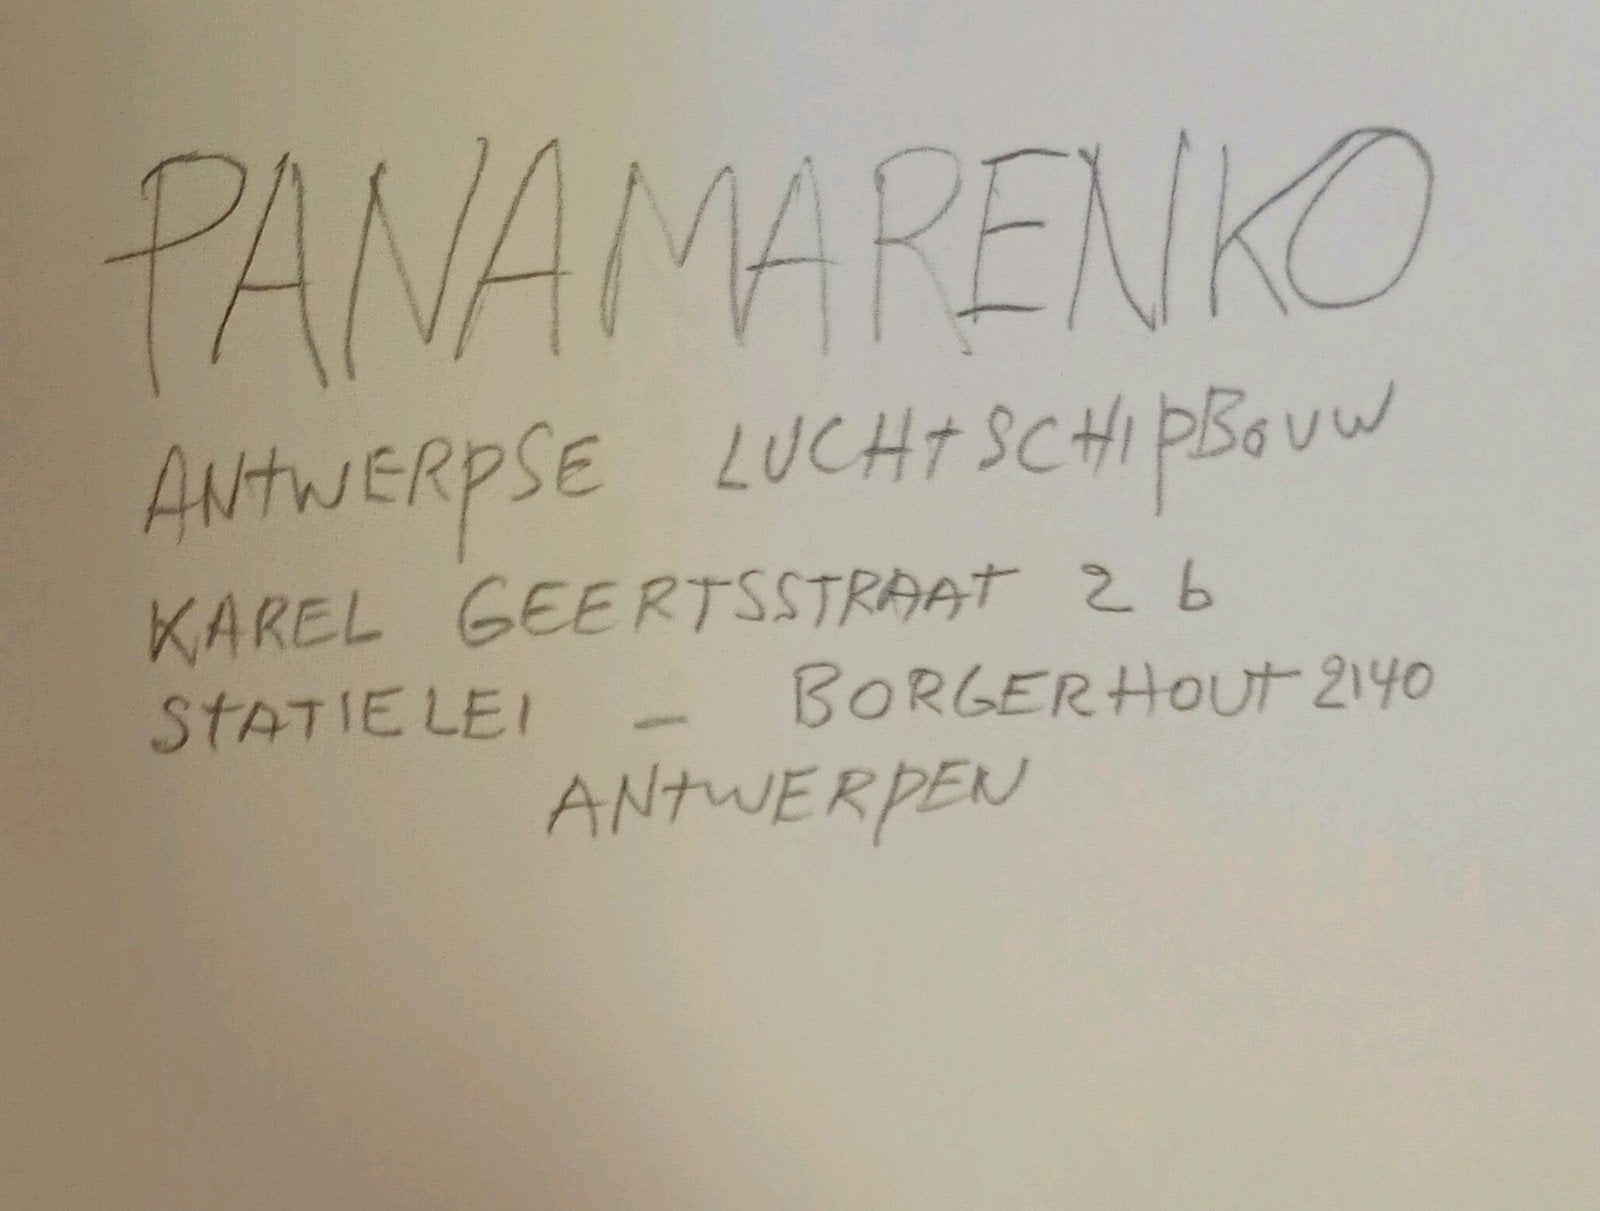 PANAMARENKO
ANTWERPSE LUCHTSCHIPBOUW
KAREL GEERTSSTRAAT 2 b
STATIELEI - BORGERHOUT 2140
ANTWERPEN